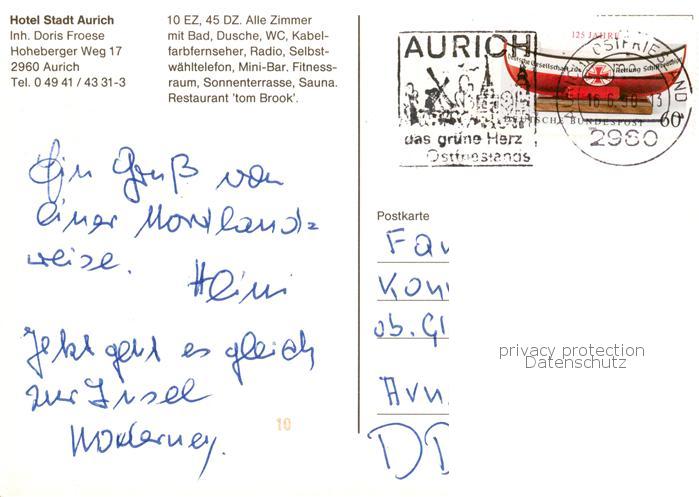 Hotel Stadt Aurich
Inh. Doris Froese
Hoheberger Weg 17
2960 Aurich
Tel. 0 49 41 / 43 31-3
10 EZ, 45 DZ. Alle Zimmer
mit Bad, Dusche, WC, Kabel-
farbfernseher, Radio, Selbst-
wähltelefon, Mini-Bar. Fitness-
raum, Sonnenterrasse, Sauna.
Restaurant 'tom Brook'.
AURICH
das grüne Herz
Ostfrieslands
125 JAHRE
Deutsche Gesellschaft zur Rettung Schiffbrüchiger
DEUTSCHE BUNDESPOST 60
OSTFRIESLAND
2960
Ein Gruß von
einer Nordland=
reise.
Heini
Jetzt geht es gleich
zur Insel
Norderney.
10
Postkarte
Fa
Kon
ob. Gl
DD
privacy protection
Datenschutz